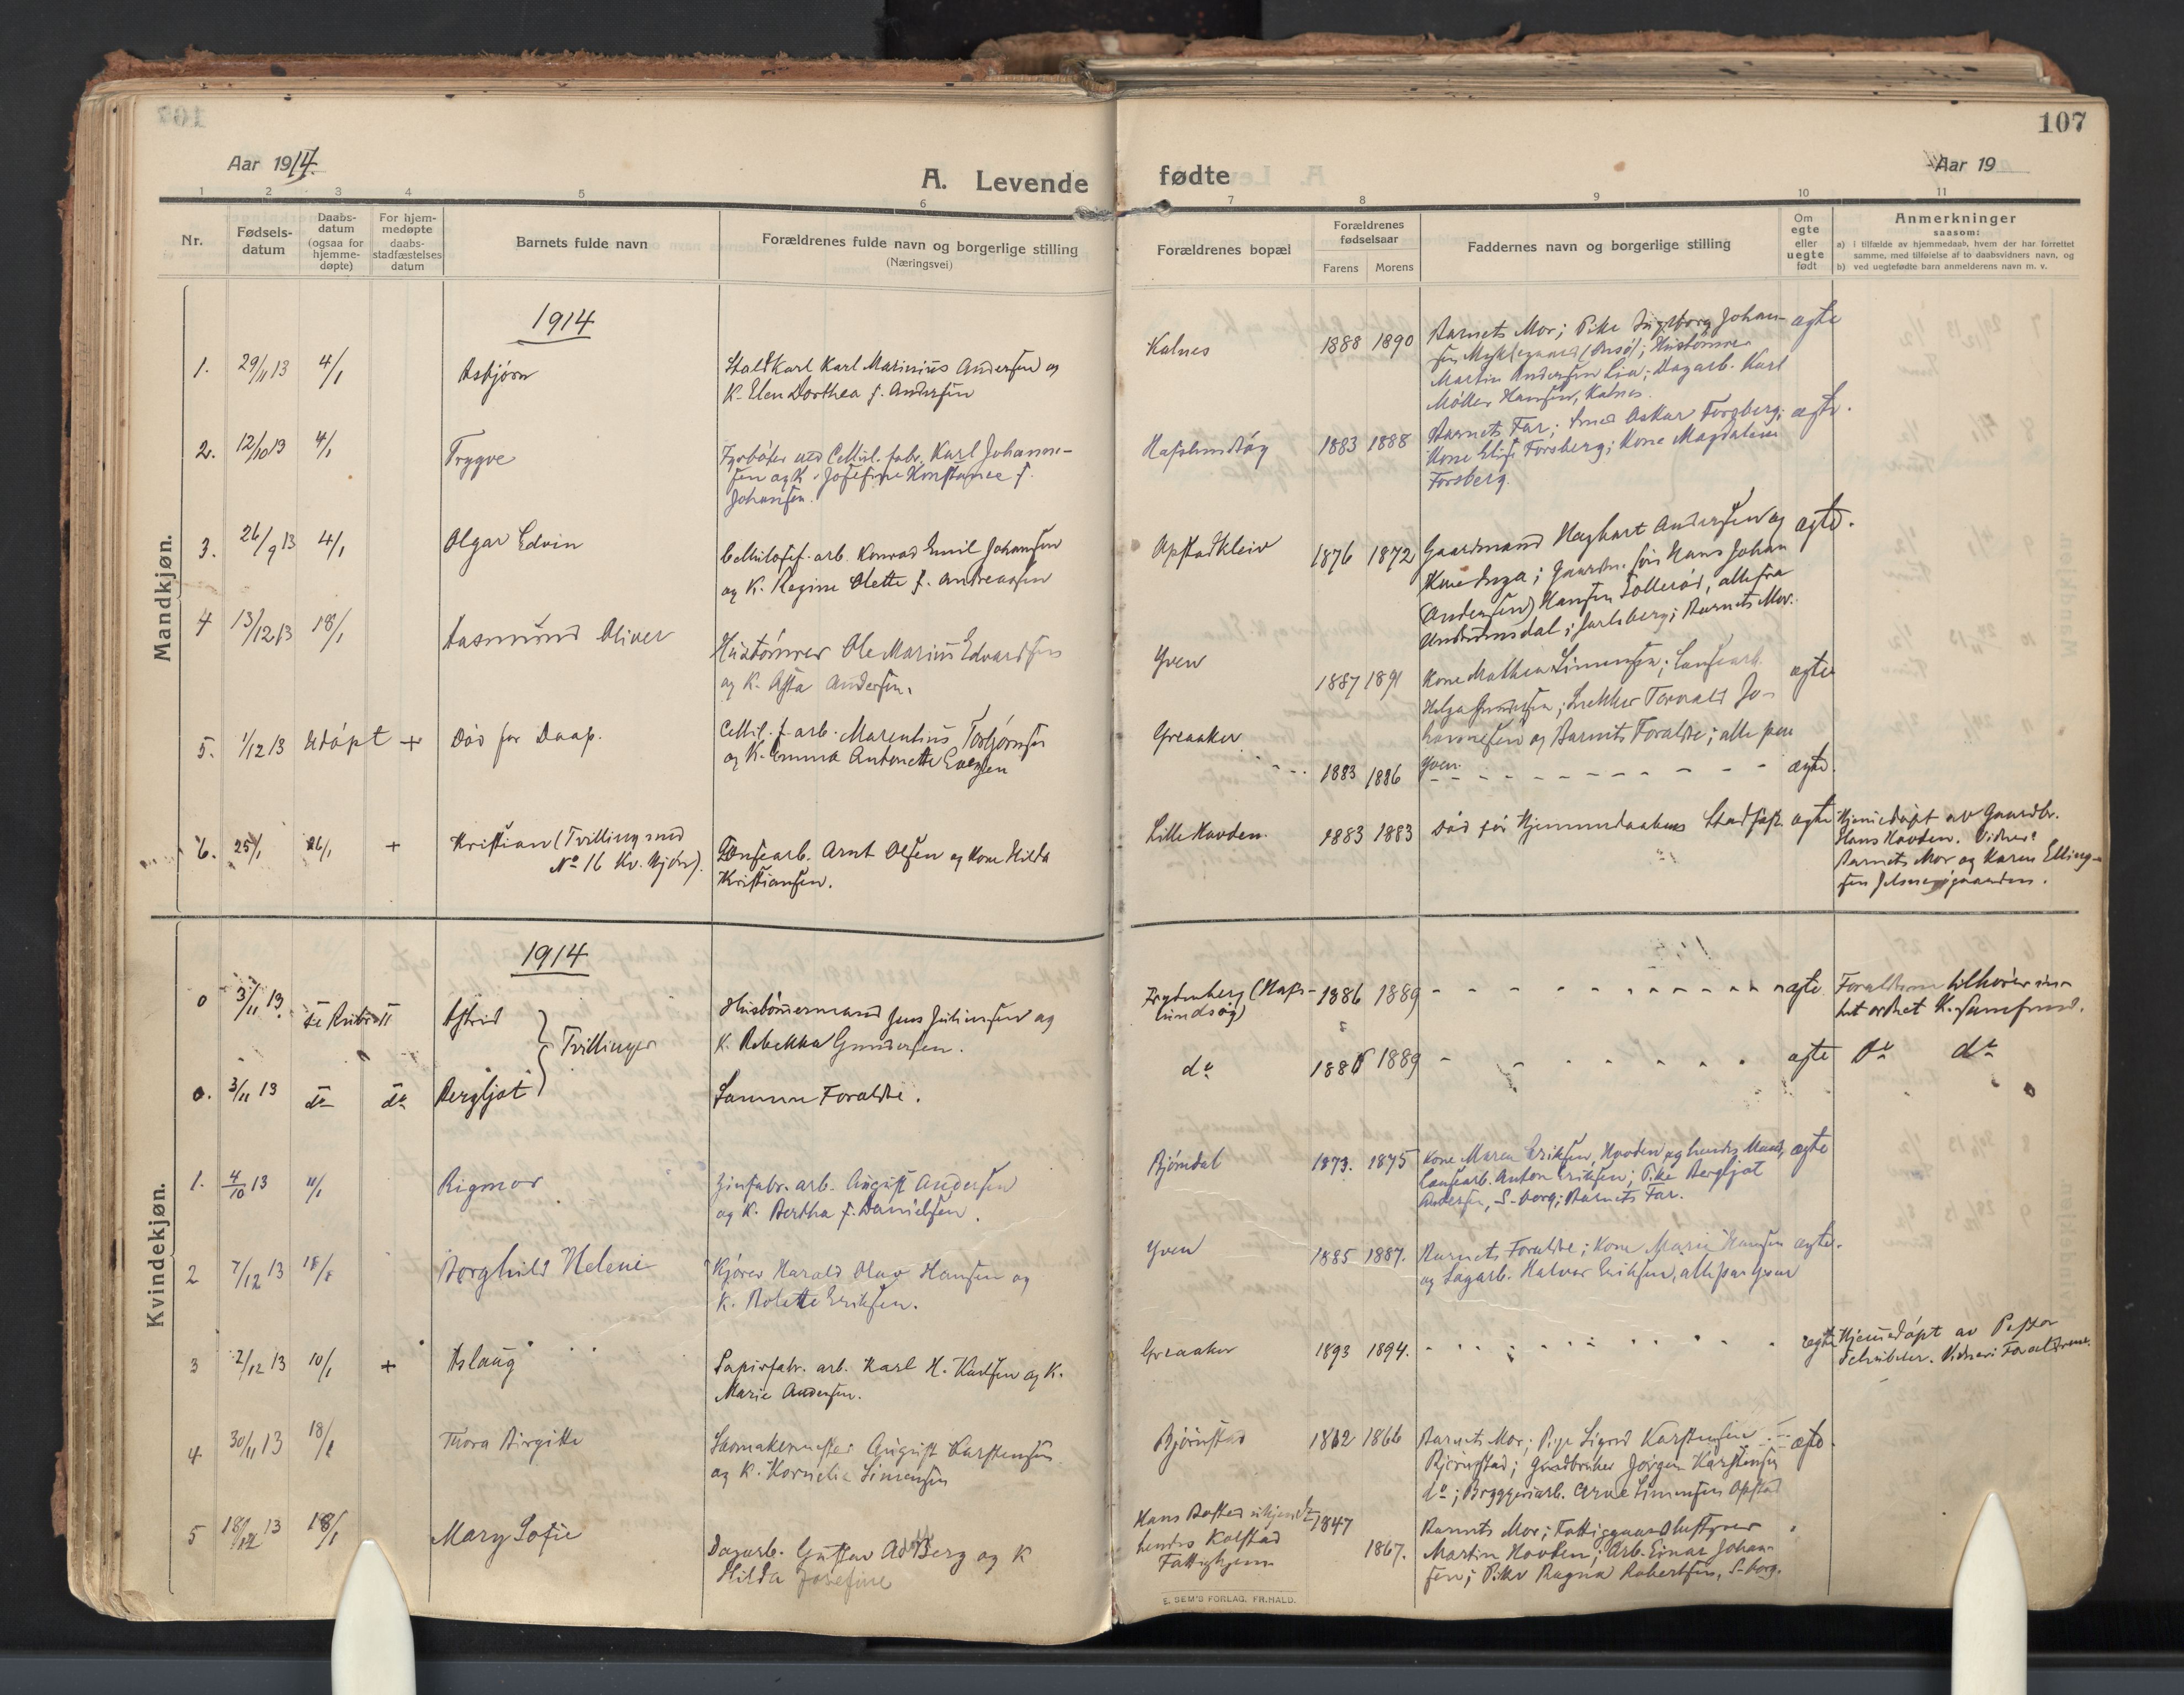 107
Aar 1914.
Aar 19
A. Levende fødte
1 2 3 4 5 6 7 8 9 10 11
Nr.
Fødsels-
datum
Daabs-
datum
(ogsaa for
hjemme-
døpte)
For hjem-
medøpte
daabs-
stadfæstelses
datum
Barnets fulde navn
Forældrenes fulde navn og borgerlige stilling
(Næringsvei)
Forældrenes bopæl
Forældrenes
fødselsaar
Farens Morens
Faddernes navn og borgerlige stilling
Om
egte
eller
uegte
født
Anmerkninger
saasom:
a) i tilfælde av hjemmedaab, hvem der har forrettet
samme, med tilføielse af to daabsvidners navn, og
b) ved uegtefødte barn anmelderens navn m. v.
Mandkjøn.
1914
1. 29/11 13 4/1 Asbjørn
Staldkarl Karl Marinius Andersen og
K. Elen Dorthea f. Andersen
Kalnes 1888 1890
Barnets Mor; Pike Ingeborg Johan-
Martin Andersen Lia; Dagarb. Karl
Møller Hansen, Kalnes.
egte
2. 12/10 13 4/1 Trygve
Fyrbøter ved Cellul. fabr. Karl Johanne-
sen og K. Josefine Konstance f.
Johansen.
Hafslundsøy 1883 1888
Barnets Far; Oskar Forsberg;
Kone Elise Forsberg; Kone Magdalene
Forsberg.
egte.
3. 26/9 13 4/1 Olgar Edvin
Cellulosef. arb. Konrad Emil Johansen
og K. Regine Olette f. Andreassen
Opstadkleiv 1876 1872
Gaardmand Haghart Andersen og
Kone Inga; Gaardm. søn Hans Johan
(Andersen) Hansen Tollerød, alle fra
Undrumsdal i Jarlsberg; Barnets Mor.
egte.
4 13/12 13 18/1 Aasmund Oliver
Hustømrer Ole Marius Edvardsen
og K. Asta Andersen.
Yven 1887 1891
Kone Mathea Simensen; Lensearb.
Helge; Snekker Torvald Jo-
hannesen og Barnets Foraldre; alle paa
Yven.
egte
5. 1/12 13 Udøpt + Død før Daap.
Cellul. f. arb. Marentius Torbjørnsen
og K. Emma Antonette Evensen
Greaaker 1883 1886
egte.
6. 25/1 26/1 + Kristian (Tvilling med
No 16 Kv. Kjøn).
Lensearb. Arnt Olsen og Kone Hilda
Kristiansen.
Lille Hovden. 1883 1883
Død før Hjemmedaabens Stadfæst. egte
Hjemedøpt av Gaardbr.
Hans Hovden. Vidner:
Barnets Mor og Karen Elling-
sen
Kvindekjøn.
1914
0 3/11 13. Astrid
Tvillinger
Hustømermand Jens Juliussen og
K. Rebekka Gundersen.
Frydenberg (Hafs-
lundsøy) 1886 1889
egte
Foraldrene tilhører
K. samfund.
0. 3/11 13 do do Bergljot
Samme Foraldre.
do 1886 1889
egte do do
1. 4/10 13 11/1 Rigmor
Zinkfabr. arb. August Andersen
og K. Bertha f. Danielsen.
Bjørndal 1873. 1875
Kone Maren Eriksen, Hovden og hendes Mand,
Lensearb. Anton Eriksen; Pike Bergljot
Andersen, S-borg; Barnets Far.
egte
2 7/12 13 18/1 Borghild Helene
Kjører Harald Olav Hansen og
K. Bolette Eriksen.
Yven 1885 1887.
Barnets Foraldre; Kone Marie Hansen
og Sagarb. Halvor Eriksen, alle paa Yven
egte.
3 2/12 13 10/1 + Aslaug
Papirfabr. arb. Karl H. Karlsen og K.
Marie Andersen.
Greaaker 1893 1894.
egte
Hjemedøpt av Pastor
Schibeler. Vidner: Forældrene.
4 30/11 13 18/1 Thora Birgitte
Skomakermester August Karstensen
og K. Kornelia Simensen
Bjørnstad 1862 1866
Barnets Mor; Pige Sigrid Karstensen
Bjørnstad; Gaardbruker Jørgen Karstensen
do; Bryggeriarb. Arne Simensen Opstad
egte.
5 18/12 13 18/1 Mary Sofie
Dagarb. Gustav Adolf Berg og K
Hilda Josefine
Hans Bosted ukjendt,
hendes Kalstad
Fattighjem
1847
1867.
Barnets Mor; Fattiggaardbestyrer
Martin Hovden; Arb. Einar Johan-
sen; Pike Ragna Robertsen, S-borg.
E. SEM'S FORLAG, FR.HALD.